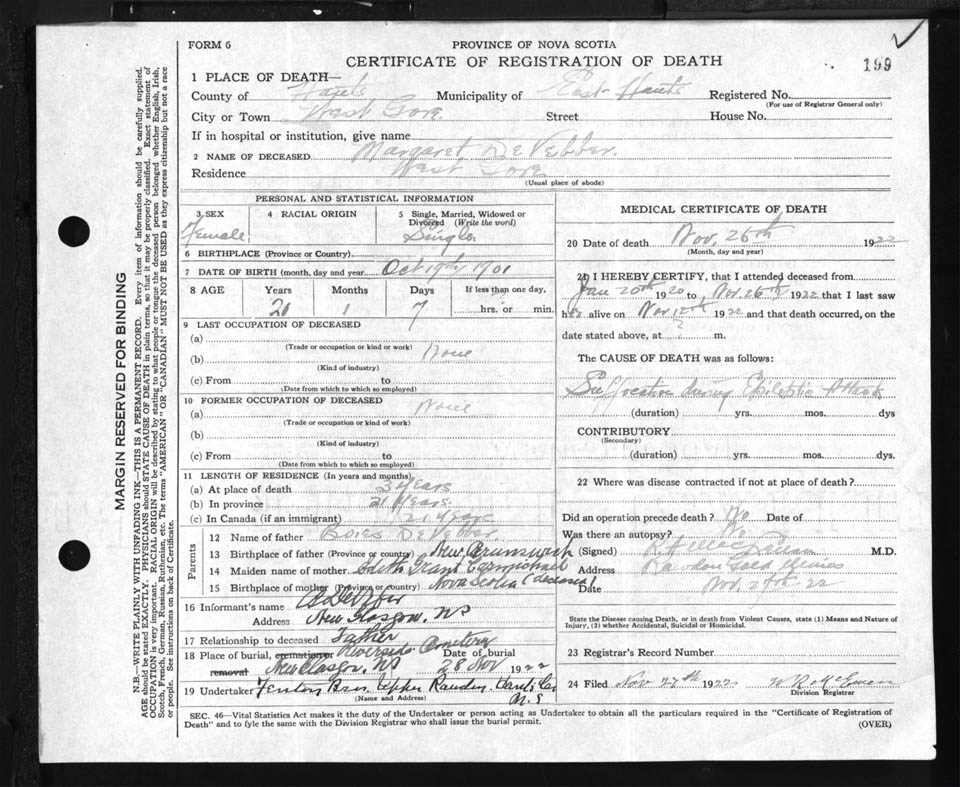 FORM 6
PROVINCE OF NOVA SCOTIA
CERTIFICATE OF REGISTRATION OF DEATH
199
1 PLACE OF DEATH—
County of Hants Municipality of East Hants Registered No.
(For use of Registrar General only)
City or Town West Gore Street House No.
If in hospital or institution, give name
2 NAME OF DECEASED Margaret DeVebber.
Residence West Gore
(Usual place of abode)
PERSONAL AND STATISTICAL INFORMATION
3 SEX
Female
4 RACIAL ORIGIN
5 Single, Married, Widowed or Divorced (Write the word)
Single
6 BIRTHPLACE (Province or Country)
7 DATE OF BIRTH (month, day and year) Oct 19th 1901
8 AGE Years Months Days If less than one day,
21 1 7 hrs. or min.
9 LAST OCCUPATION OF DECEASED
(a)
(Trade or occupation or kind or work)
(b) None
(Kind of industry)
(c) From to
(Date from which to which so employed)
10 FORMER OCCUPATION OF DECEASED
(a) None
(Trade or occupation or kind of work)
(b)
(Kind of industry)
(c) From to
(Date from which to which so employed)
11 LENGTH OF RESIDENCE (In years and months)
(a) At place of death 3 years
(b) In province 21 Years.
(c) In Canada (if an immigrant) 21 years
Parents
12 Name of father Boies DeVebber
13 Birthplace of father (Province or country) New Brunswick
14 Maiden name of mother Edith Grant Carmichael
15 Birthplace of mother (Province or country) Nova Scotia (deceased)
16 Informant's name
Address New Glasgow, NS
17 Relationship to deceased Father
18 Place of burial, cremation or removal Riverside Cemetery New Glasgow, NS
Date of burial 28 Nov 1922
19 Undertaker Fenton Bros Upper Rawdon Hants Co N.S
(Name and Address)
MEDICAL CERTIFICATE OF DEATH
20 Date of death Nov. 26th 1922
(Month, day and year)
21 I HEREBY CERTIFY, that I attended deceased from
Jan 20th 1920 to Nov. 26th 1922 that I last saw
her alive on Nov 12th 1922 and that death occurred, on the
date stated above, at ? m.
The CAUSE OF DEATH was as follows:
Suffocation during Epileptic Attack
(duration) yrs. mos. dys
CONTRIBUTORY
(Secondary)
(duration) yrs. mos. dys.
22 Where was disease contracted if not at place of death?
Did an operation precede death? No Date of
Was there an autopsy? No
(Signed) M.D.
Address Rawdon Gold Mines
Date Nov. 27th - 22
State the Disease causing Death, or in death from Violent Causes, state (1) Means and Nature of Injury, (2) whether Accidental, Suicidal or Homicidal.
23 Registrar's Record Number
24 Filed Nov 27th 1922 W R McEwen
Division Registrar
SEC. 46—Vital Statistics Act makes it the duty of the Undertaker or person acting as Undertaker to obtain all the particulars required in the "Certificate of Registration of
Death" and to fyle the same with the Division Registrar who shall issue the burial permit.
(OVER)
MARGIN RESERVED FOR BINDING
N.B.—WRITE PLAINLY WITH UNFADING INK—THIS IS A PERMANENT RECORD. Every item of information should be carefully supplied.
AGE should be stated EXACTLY. PHYSICIANS should STATE CAUSE OF DEATH in plain terms, so that it may be properly classified. Exact statement of
OCCUPATION is very important. RACIAL ORIGIN will be described by stating to what people or tongue the deceased person belonged whether English, Irish,
Scotch, French, German, Russian, Ruthenian, etc. The terms "AMERICAN" OR "CANADIAN" MUST NOT BE USED as they express citizenship but not a race
or people. See instructions on back of Certificate.